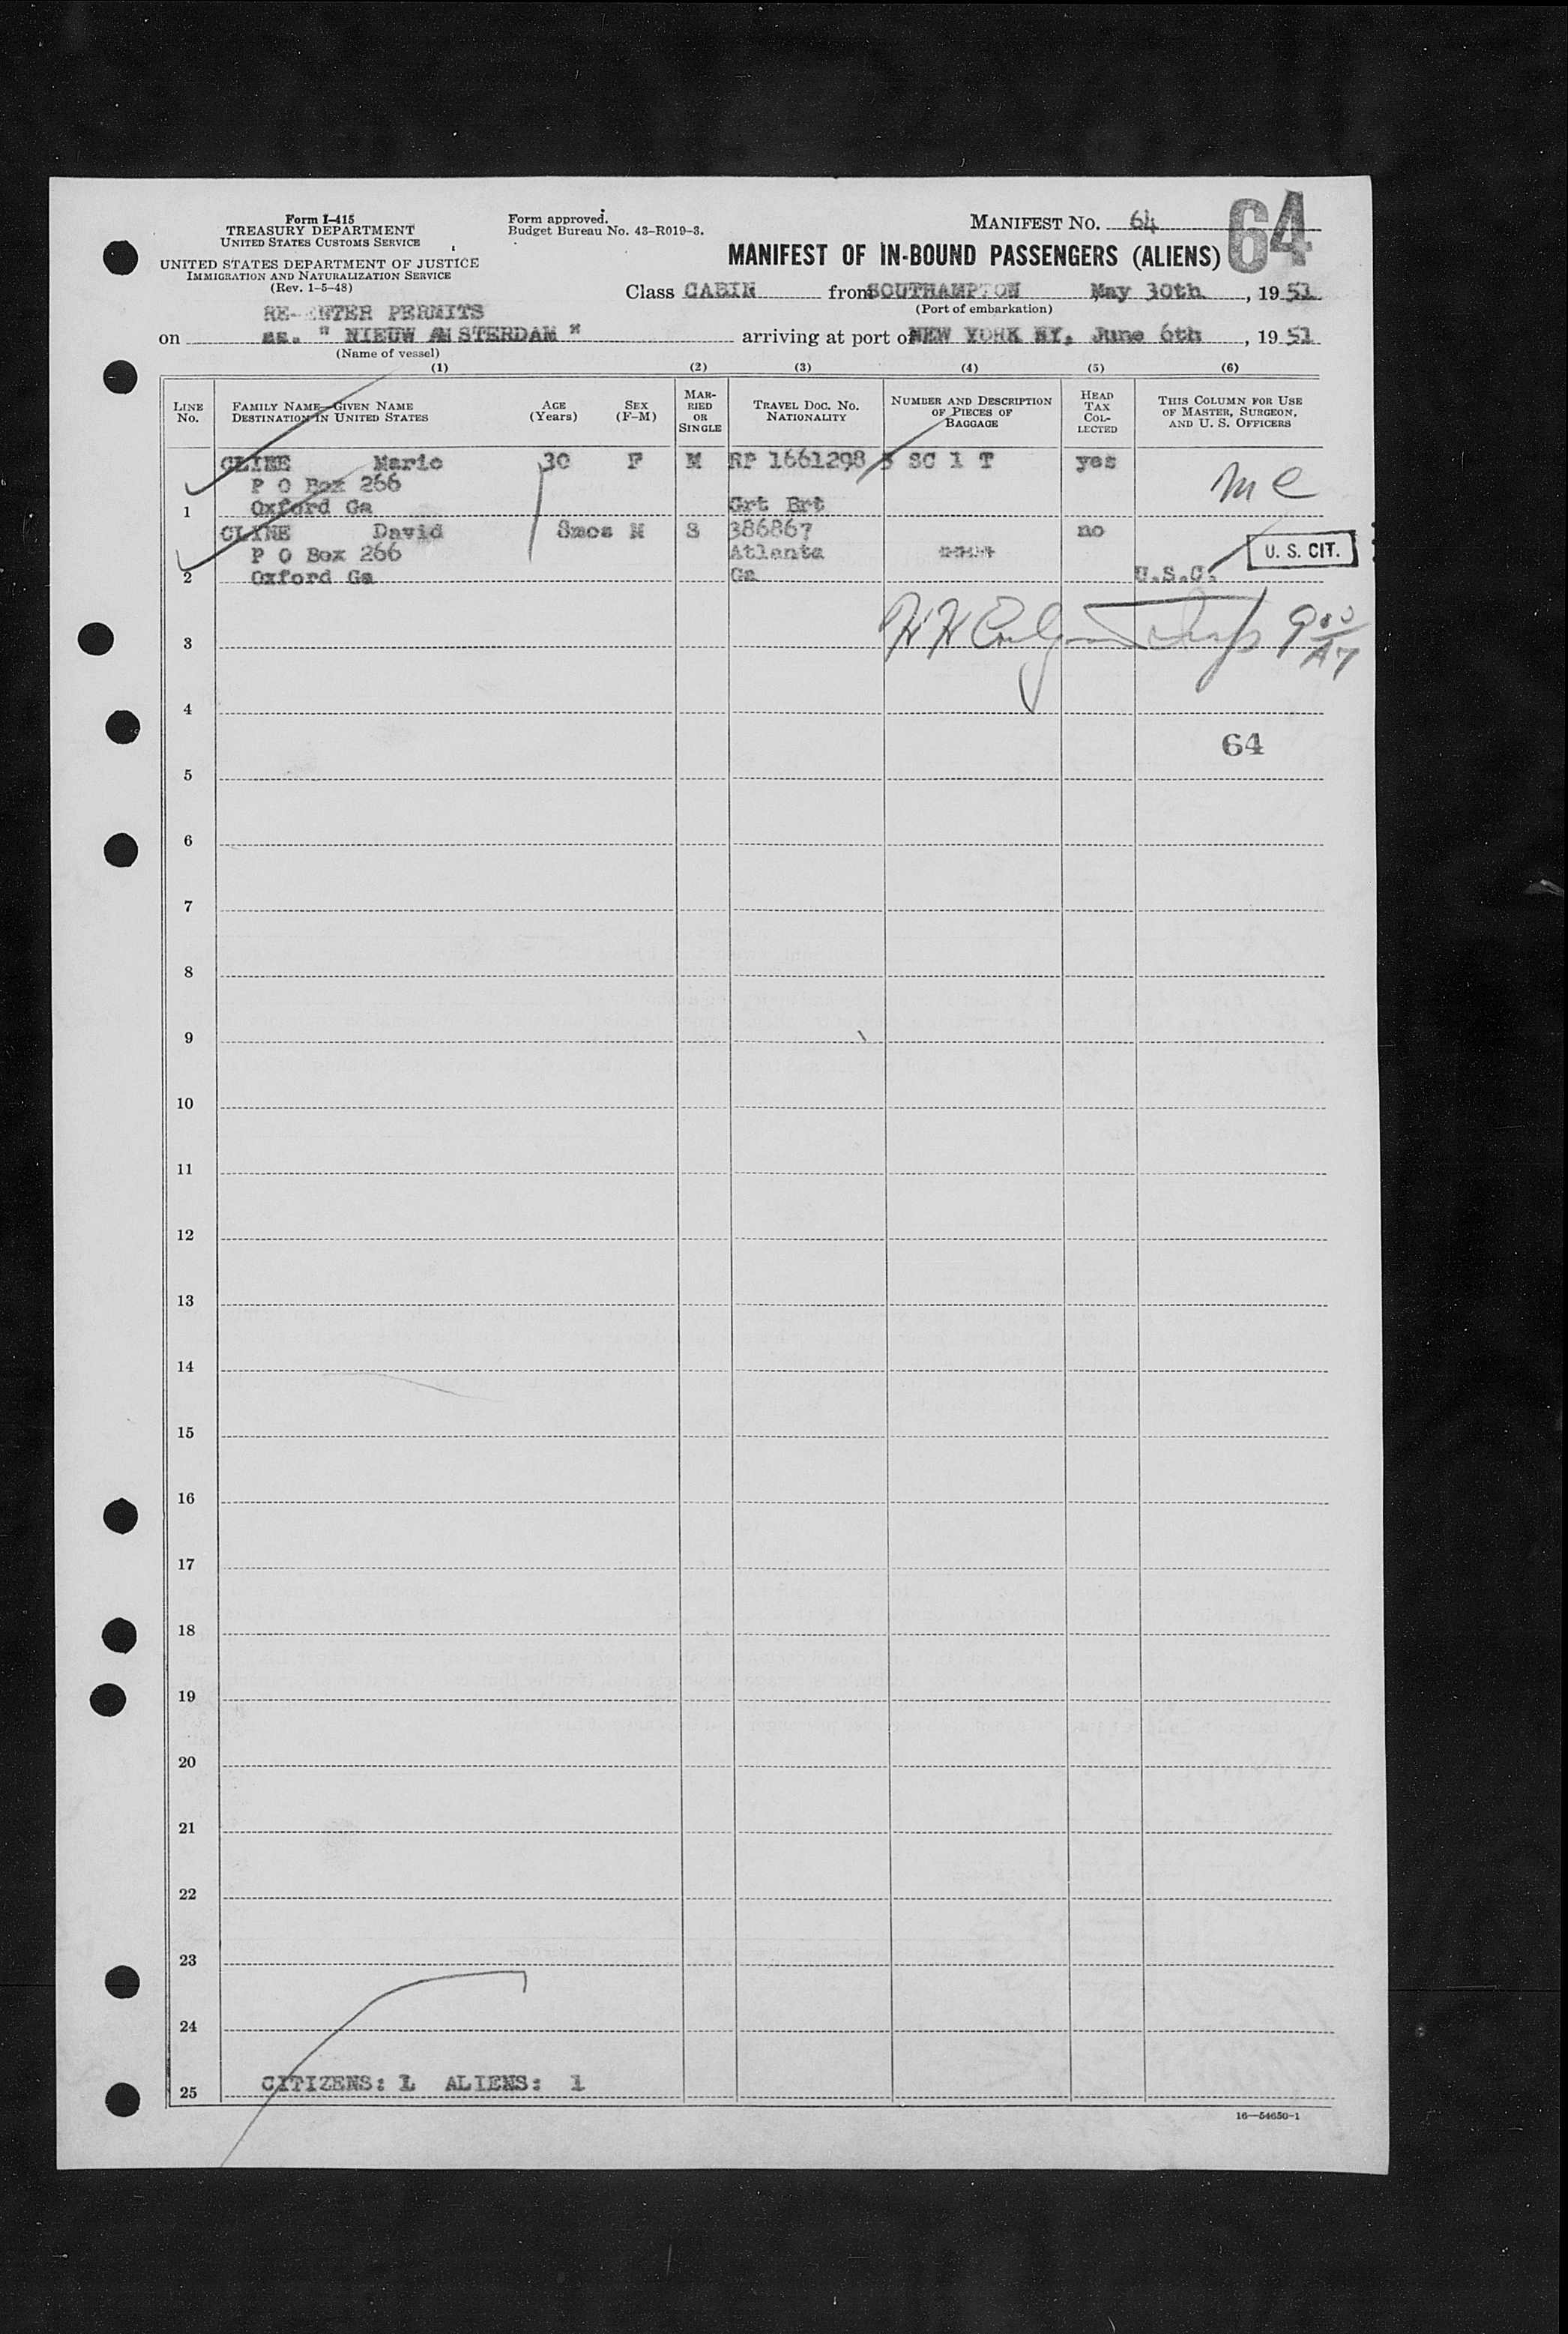 Form I-415
TREASURY DEPARTMENT
UNITED STATES CUSTOMS SERVICE
UNITED STATES DEPARTMENT OF JUSTICE
IMMIGRATION AND NATURALIZATION SERVICE
(Rev. 1-5-48)
Form approved.
Budget Bureau No. 43-R019-3.
MANIFEST NO. 64
64
MANIFEST OF IN-BOUND PASSENGERS (ALIENS)
Class CABIN from SOUTHAMPTON May 30th, 1951
(Port of embarkation)
RE-ENTER PERMITS
on ss. " NIEUW AMSTERDAM " arriving at port of NEW YORK NY, June 6th, 1951
(Name of vessel)
(1) (2) (3) (4) (5) (6)
LINE No. FAMILY NAME—GIVEN NAME DESTINATION IN UNITED STATES AGE (Years) SEX (F-M) MARRIED OR SINGLE TRAVEL DOC. NO. NATIONALITY NUMBER AND DESCRIPTION OF PIECES OF BAGGAGE HEAD TAX COLLECTED THIS COLUMN FOR USE OF MASTER, SURGEON, AND U. S. OFFICERS
CLINE Marie 30 F M RP 1661298 3 SC 1 T yes
P O Box 266 me
1 Oxford Ga Grt Brt
CLINE David 8mos M S 386867 no
P O Box 266 Atlanta U. S. CIT.
2 Oxford Ga Ga U.S.C.
3
4
64
5
6
7
8
9
10
11
12
13
14
15
16
17
18
19
20
21
22
23
24
25 CITIZENS: 1 ALIENS: 1
16—54650-1